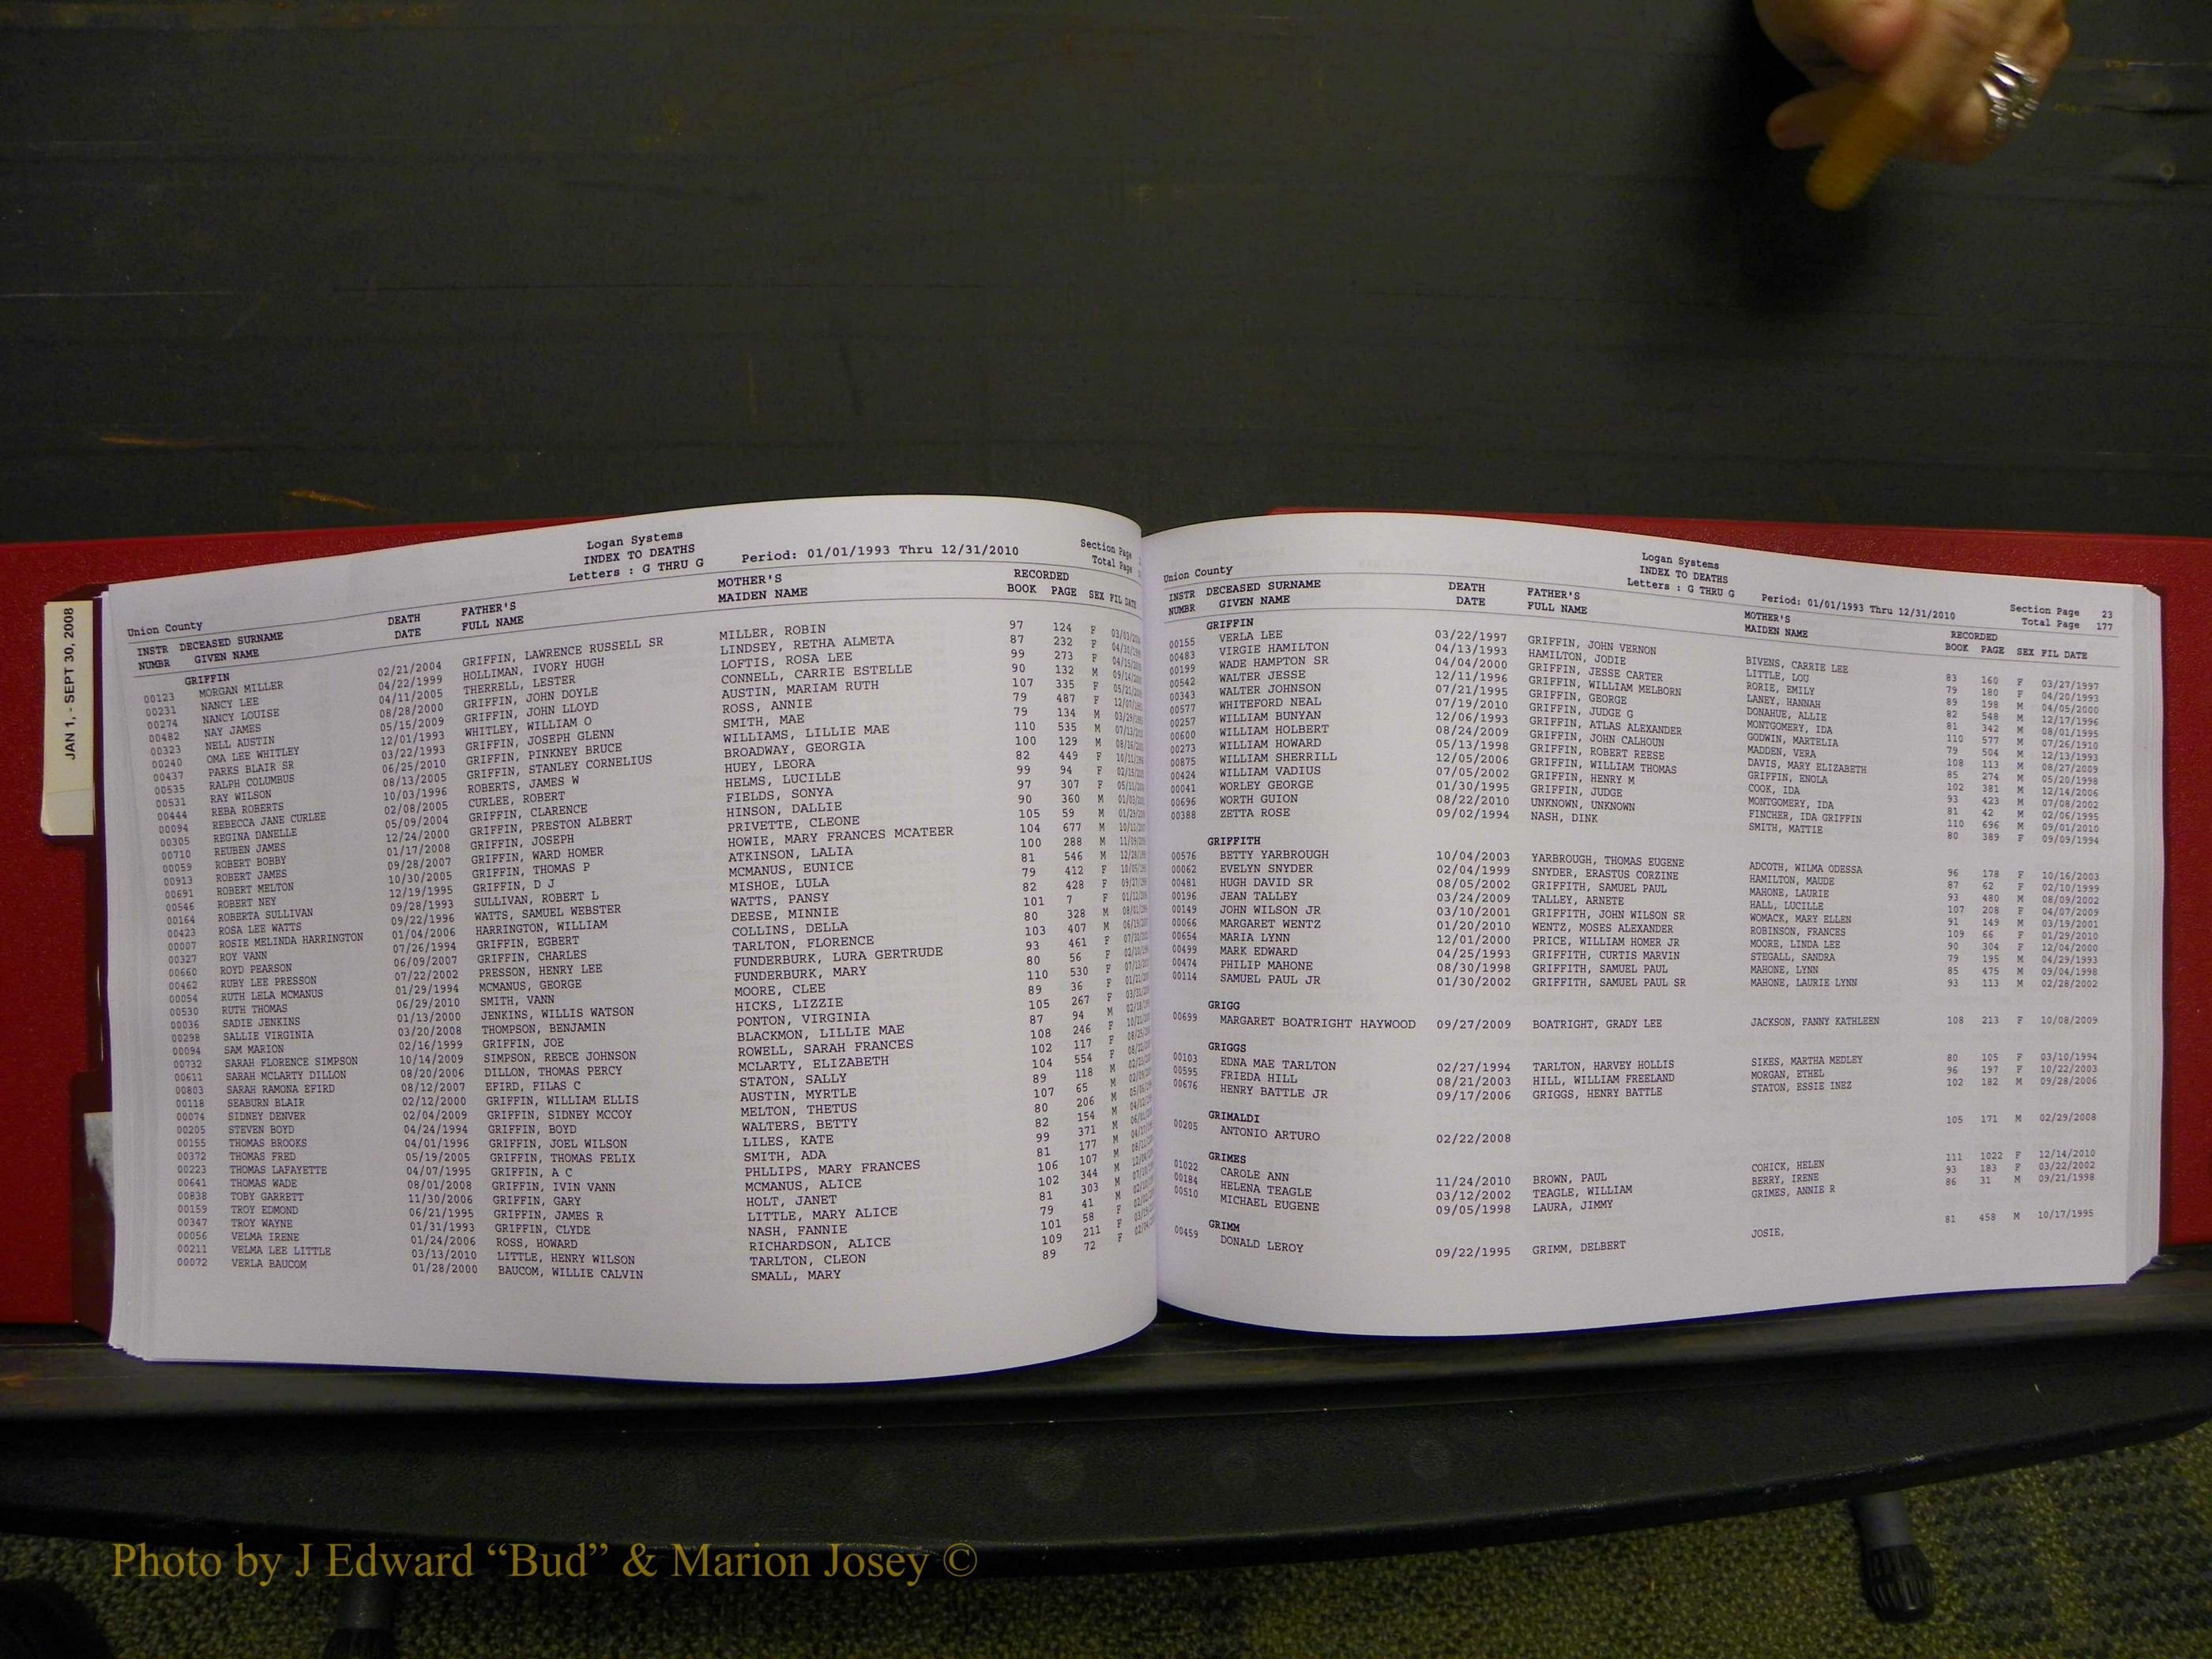 JAN 1, - SEPT 30, 2008
Logan Systems
INDEX TO DEATHS
Letters : G THRU G Period: 01/01/1993 Thru 12/31/2010
Section Page
Total Page
Union County
INSTR DECEASED SURNAME DEATH FATHER'S MOTHER'S RECORDED
NUMBR GIVEN NAME DATE FULL NAME MAIDEN NAME BOOK PAGE SEX FIL DATE
GRIFFIN
00123 MORGAN MILLER 02/21/2004 GRIFFIN, LAWRENCE RUSSELL SR MILLER, ROBIN 97 124 F
00231 NANCY LEE 04/22/1999 HOLLIMAN, IVORY HUGH LINDSEY, RETHA ALMETA 87 232 F
00274 NANCY LOUISE 04/11/2005 THERRELL, LESTER LOFTIS, ROSA LEE 99 273 F
00482 NAY JAMES 08/28/2000 GRIFFIN, JOHN DOYLE CONNELL, CARRIE ESTELLE 90 132 M
00323 NELL AUSTIN 05/15/2009 GRIFFIN, JOHN LLOYD AUSTIN, MARIAM RUTH 107 335 F
00240 OMA LEE WHITLEY 12/01/1993 WHITLEY, WILLIAM O ROSS, ANNIE 79 487 F
00437 PARKS BLAIR SR 03/22/1993 GRIFFIN, JOSEPH GLENN SMITH, MAE 79 134 M
00535 RALPH COLUMBUS 06/25/2010 GRIFFIN, PINKNEY BRUCE WILLIAMS, LILLIE MAE 110 535 M
00531 RAY WILSON 08/13/2005 GRIFFIN, STANLEY CORNELIUS BROADWAY, GEORGIA 100 129 M
00444 REBA ROBERTS 10/03/1996 ROBERTS, JAMES W HUEY, LEORA 82 449 F
00094 REBECCA JANE CURLEE 02/08/2005 CURLEE, ROBERT HELMS, LUCILLE 99 94 F
00305 REGINA DANELLE 05/09/2004 GRIFFIN, CLARENCE FIELDS, SONYA 97 307 F
00710 REUBEN JAMES 12/24/2000 GRIFFIN, PRESTON ALBERT HINSON, DALLIE 90 360 M
00059 ROBERT BOBBY 01/17/2008 GRIFFIN, JOSEPH PRIVETTE, CLEONE 105 59 M
00913 ROBERT JAMES 09/28/2007 GRIFFIN, WARD HOMER HOWIE, MARY FRANCES MCATEER 104 677 M
00691 ROBERT MELTON 10/30/2005 GRIFFIN, THOMAS P ATKINSON, LALIA 100 288 M
00546 ROBERT NEY 12/19/1995 GRIFFIN, D J MCMANUS, EUNICE 81 546 M
00164 ROBERTA SULLIVAN 09/28/1993 SULLIVAN, ROBERT L MISHOE, LULA 79 412 F
00423 ROSA LEE WATTS 09/22/1996 WATTS, SAMUEL WEBSTER WATTS, PANSY 82 428 F
00007 ROSIE MELINDA HARRINGTON 01/04/2006 HARRINGTON, WILLIAM DEESE, MINNIE 101 7 F
00327 ROY VANN 07/26/1994 GRIFFIN, EGBERT COLLINS, DELLA 80 328 M
00660 ROYD PEARSON 06/09/2007 GRIFFIN, CHARLES TARLTON, FLORENCE 103 407 M
00462 RUBY LEE PRESSON 07/22/2002 PRESSON, HENRY LEE FUNDERBURK, LURA GERTRUDE 93 461 F
00054 RUTH LELA MCMANUS 01/29/1994 MCMANUS, GEORGE FUNDERBURK, MARY 80 56 F
00530 RUTH THOMAS 06/29/2010 SMITH, VANN MOORE, CLEE 110 530 F
00036 SADIE JENKINS 01/13/2000 JENKINS, WILLIS WATSON HICKS, LIZZIE 89 36 F
00298 SALLIE VIRGINIA 03/20/2008 THOMPSON, BENJAMIN PONTON, VIRGINIA 105 267 F
00094 SAM MARION 02/16/1999 GRIFFIN, JOE BLACKMON, LILLIE MAE 87 94 M
00732 SARAH FLORENCE SIMPSON 10/14/2009 SIMPSON, REECE JOHNSON ROWELL, SARAH FRANCES 108 246 F
00611 SARAH MCLARTY DILLON 08/20/2006 DILLON, THOMAS PERCY MCLARTY, ELIZABETH 102 117 F
00803 SARAH RAMONA EFIRD 08/12/2007 EFIRD, FILAS C STATON, SALLY 104 554 F
00118 SEABURN BLAIR 02/12/2000 GRIFFIN, WILLIAM ELLIS AUSTIN, MYRTLE 89 118 M
00074 SIDNEY DENVER 02/04/2009 GRIFFIN, SIDNEY MCCOY MELTON, THETUS 107 65 M
00205 STEVEN BOYD 04/24/1994 GRIFFIN, BOYD WALTERS, BETTY 80 206 M
00155 THOMAS BROOKS 04/01/1996 GRIFFIN, JOEL WILSON LILES, KATE 82 154 M
00372 THOMAS FRED 05/19/2005 GRIFFIN, THOMAS FELIX SMITH, ADA 99 371 M
00223 THOMAS LAFAYETTE 04/07/1995 GRIFFIN, A C PHLLIPS, MARY FRANCES 81 177 M
00641 THOMAS WADE 08/01/2008 GRIFFIN, IVIN VANN MCMANUS, ALICE 106 107 M
00838 TOBY GARRETT 11/30/2006 GRIFFIN, GARY HOLT, JANET 102 344 M
00159 TROY EDMOND 06/21/1995 GRIFFIN, JAMES R LITTLE, MARY ALICE 81 303 M
00347 TROY WAYNE 01/31/1993 GRIFFIN, CLYDE NASH, FANNIE 79 41 M
00056 VELMA IRENE 01/24/2006 ROSS, HOWARD RICHARDSON, ALICE 101 58 F
00211 VELMA LEE LITTLE 03/13/2010 LITTLE, HENRY WILSON TARLTON, CLEON 109 211 F
00072 VERLA BAUCOM 01/28/2000 BAUCOM, WILLIE CALVIN SMALL, MARY 89 72 F
Logan Systems
INDEX TO DEATHS
Letters : G THRU G Period: 01/01/1993 Thru 12/31/2010
Section Page 23
Total Page 177
Union County
INSTR DECEASED SURNAME DEATH FATHER'S MOTHER'S RECORDED
NUMBR GIVEN NAME DATE FULL NAME MAIDEN NAME BOOK PAGE SEX FIL DATE
GRIFFIN
00155 VERLA LEE 03/22/1997 GRIFFIN, JOHN VERNON BIVENS, CARRIE LEE 83 160 F 03/27/1997
00483 VIRGIE HAMILTON 04/13/1993 HAMILTON, JODIE LITTLE, LOU 79 180 F 04/20/1993
00199 WADE HAMPTON SR 04/04/2000 GRIFFIN, JESSE CARTER RORIE, EMILY 89 198 M 04/05/2000
00542 WALTER JESSE 12/11/1996 GRIFFIN, WILLIAM MELBORN LANEY, HANNAH 82 548 M 12/17/1996
00343 WALTER JOHNSON 07/21/1995 GRIFFIN, GEORGE DONAHUE, ALLIE 81 342 M 08/01/1995
00577 WHITEFORD NEAL 07/19/2010 GRIFFIN, JUDGE G MONTGOMERY, IDA 110 577 M 07/26/1910
00257 WILLIAM BUNYAN 12/06/1993 GRIFFIN, ATLAS ALEXANDER GODWIN, MARTELIA 79 504 M 12/13/1993
00600 WILLIAM HOLBERT 08/24/2009 GRIFFIN, JOHN CALHOUN MADDEN, VERA 108 113 M 08/27/2009
00273 WILLIAM HOWARD 05/13/1998 GRIFFIN, ROBERT REESE DAVIS, MARY ELIZABETH 85 274 M 05/20/1998
00875 WILLIAM SHERRILL 12/05/2006 GRIFFIN, WILLIAM THOMAS GRIFFIN, ENOLA 102 381 M 12/14/2006
00424 WILLIAM VADIUS 07/05/2002 GRIFFIN, HENRY M COOK, IDA 93 423 M 07/08/2002
00041 WORLEY GEORGE 01/30/1995 GRIFFIN, JUDGE MONTGOMERY, IDA 81 42 M 02/06/1995
00696 WORTH GUION 08/22/2010 UNKNOWN, UNKNOWN FINCHER, IDA GRIFFIN 110 696 M 09/01/2010
00388 ZETTA ROSE 09/02/1994 NASH, DINK SMITH, MATTIE 80 389 F 09/09/1994
GRIFFITH
00576 BETTY YARBROUGH 10/04/2003 YARBROUGH, THOMAS EUGENE ADCOTH, WILMA ODESSA 96 178 F 10/16/2003
00062 EVELYN SNYDER 02/04/1999 SNYDER, ERASTUS CORZINE HAMILTON, MAUDE 87 62 F 02/10/1999
00481 HUGH DAVID SR 08/05/2002 GRIFFITH, SAMUEL PAUL MAHONE, LAURIE 93 480 M 08/09/2002
00196 JEAN TALLEY 03/24/2009 TALLEY, ARNETE HALL, LUCILLE 107 208 F 04/07/2009
00149 JOHN WILSON JR 03/10/2001 GRIFFITH, JOHN WILSON SR WOMACK, MARY ELLEN 91 149 M 03/19/2001
00066 MARGARET WENTZ 01/20/2010 WENTZ, MOSES ALEXANDER ROBINSON, FRANCES 109 66 F 01/29/2010
00654 MARIA LYNN 12/01/2000 PRICE, WILLIAM HOMER JR MOORE, LINDA LEE 90 304 F 12/04/2000
00499 MARK EDWARD 04/25/1993 GRIFFITH, CURTIS MARVIN STEGALL, SANDRA 79 195 M 04/29/1993
00474 PHILIP MAHONE 08/30/1998 GRIFFITH, SAMUEL PAUL MAHONE, LYNN 85 475 M 09/04/1998
00114 SAMUEL PAUL JR 01/30/2002 GRIFFITH, SAMUEL PAUL SR MAHONE, LAURIE LYNN 93 113 M 02/28/2002
GRIGG
00699 MARGARET BOATRIGHT HAYWOOD 09/27/2009 BOATRIGHT, GRADY LEE JACKSON, FANNY KATHLEEN 108 213 F 10/08/2009
GRIGGS
00103 EDNA MAE TARLTON 02/27/1994 TARLTON, HARVEY HOLLIS SIKES, MARTHA MEDLEY 80 105 F 03/10/1994
00595 FRIEDA HILL 08/21/2003 HILL, WILLIAM FREELAND MORGAN, ETHEL 96 197 F 10/22/2003
00676 HENRY BATTLE JR 09/17/2006 GRIGGS, HENRY BATTLE STATON, ESSIE INEZ 102 182 M 09/28/2006
GRIMALDI
00205 ANTONIO ARTURO 02/22/2008 105 171 M 02/29/2008
GRIMES
01022 CAROLE ANN 11/24/2010 BROWN, PAUL COHICK, HELEN 111 1022 F 12/14/2010
00184 HELENA TEAGLE 03/12/2002 TEAGLE, WILLIAM BERRY, IRENE 93 183 F 03/22/2002
00510 MICHAEL EUGENE 09/05/1998 LAURA, JIMMY GRIMES, ANNIE R 86 31 M 09/21/1998
GRIMM
00459 DONALD LEROY 09/22/1995 GRIMM, DELBERT JOSIE, 81 458 M 10/17/1995
Photo by J Edward “Bud” & Marion Josey ©